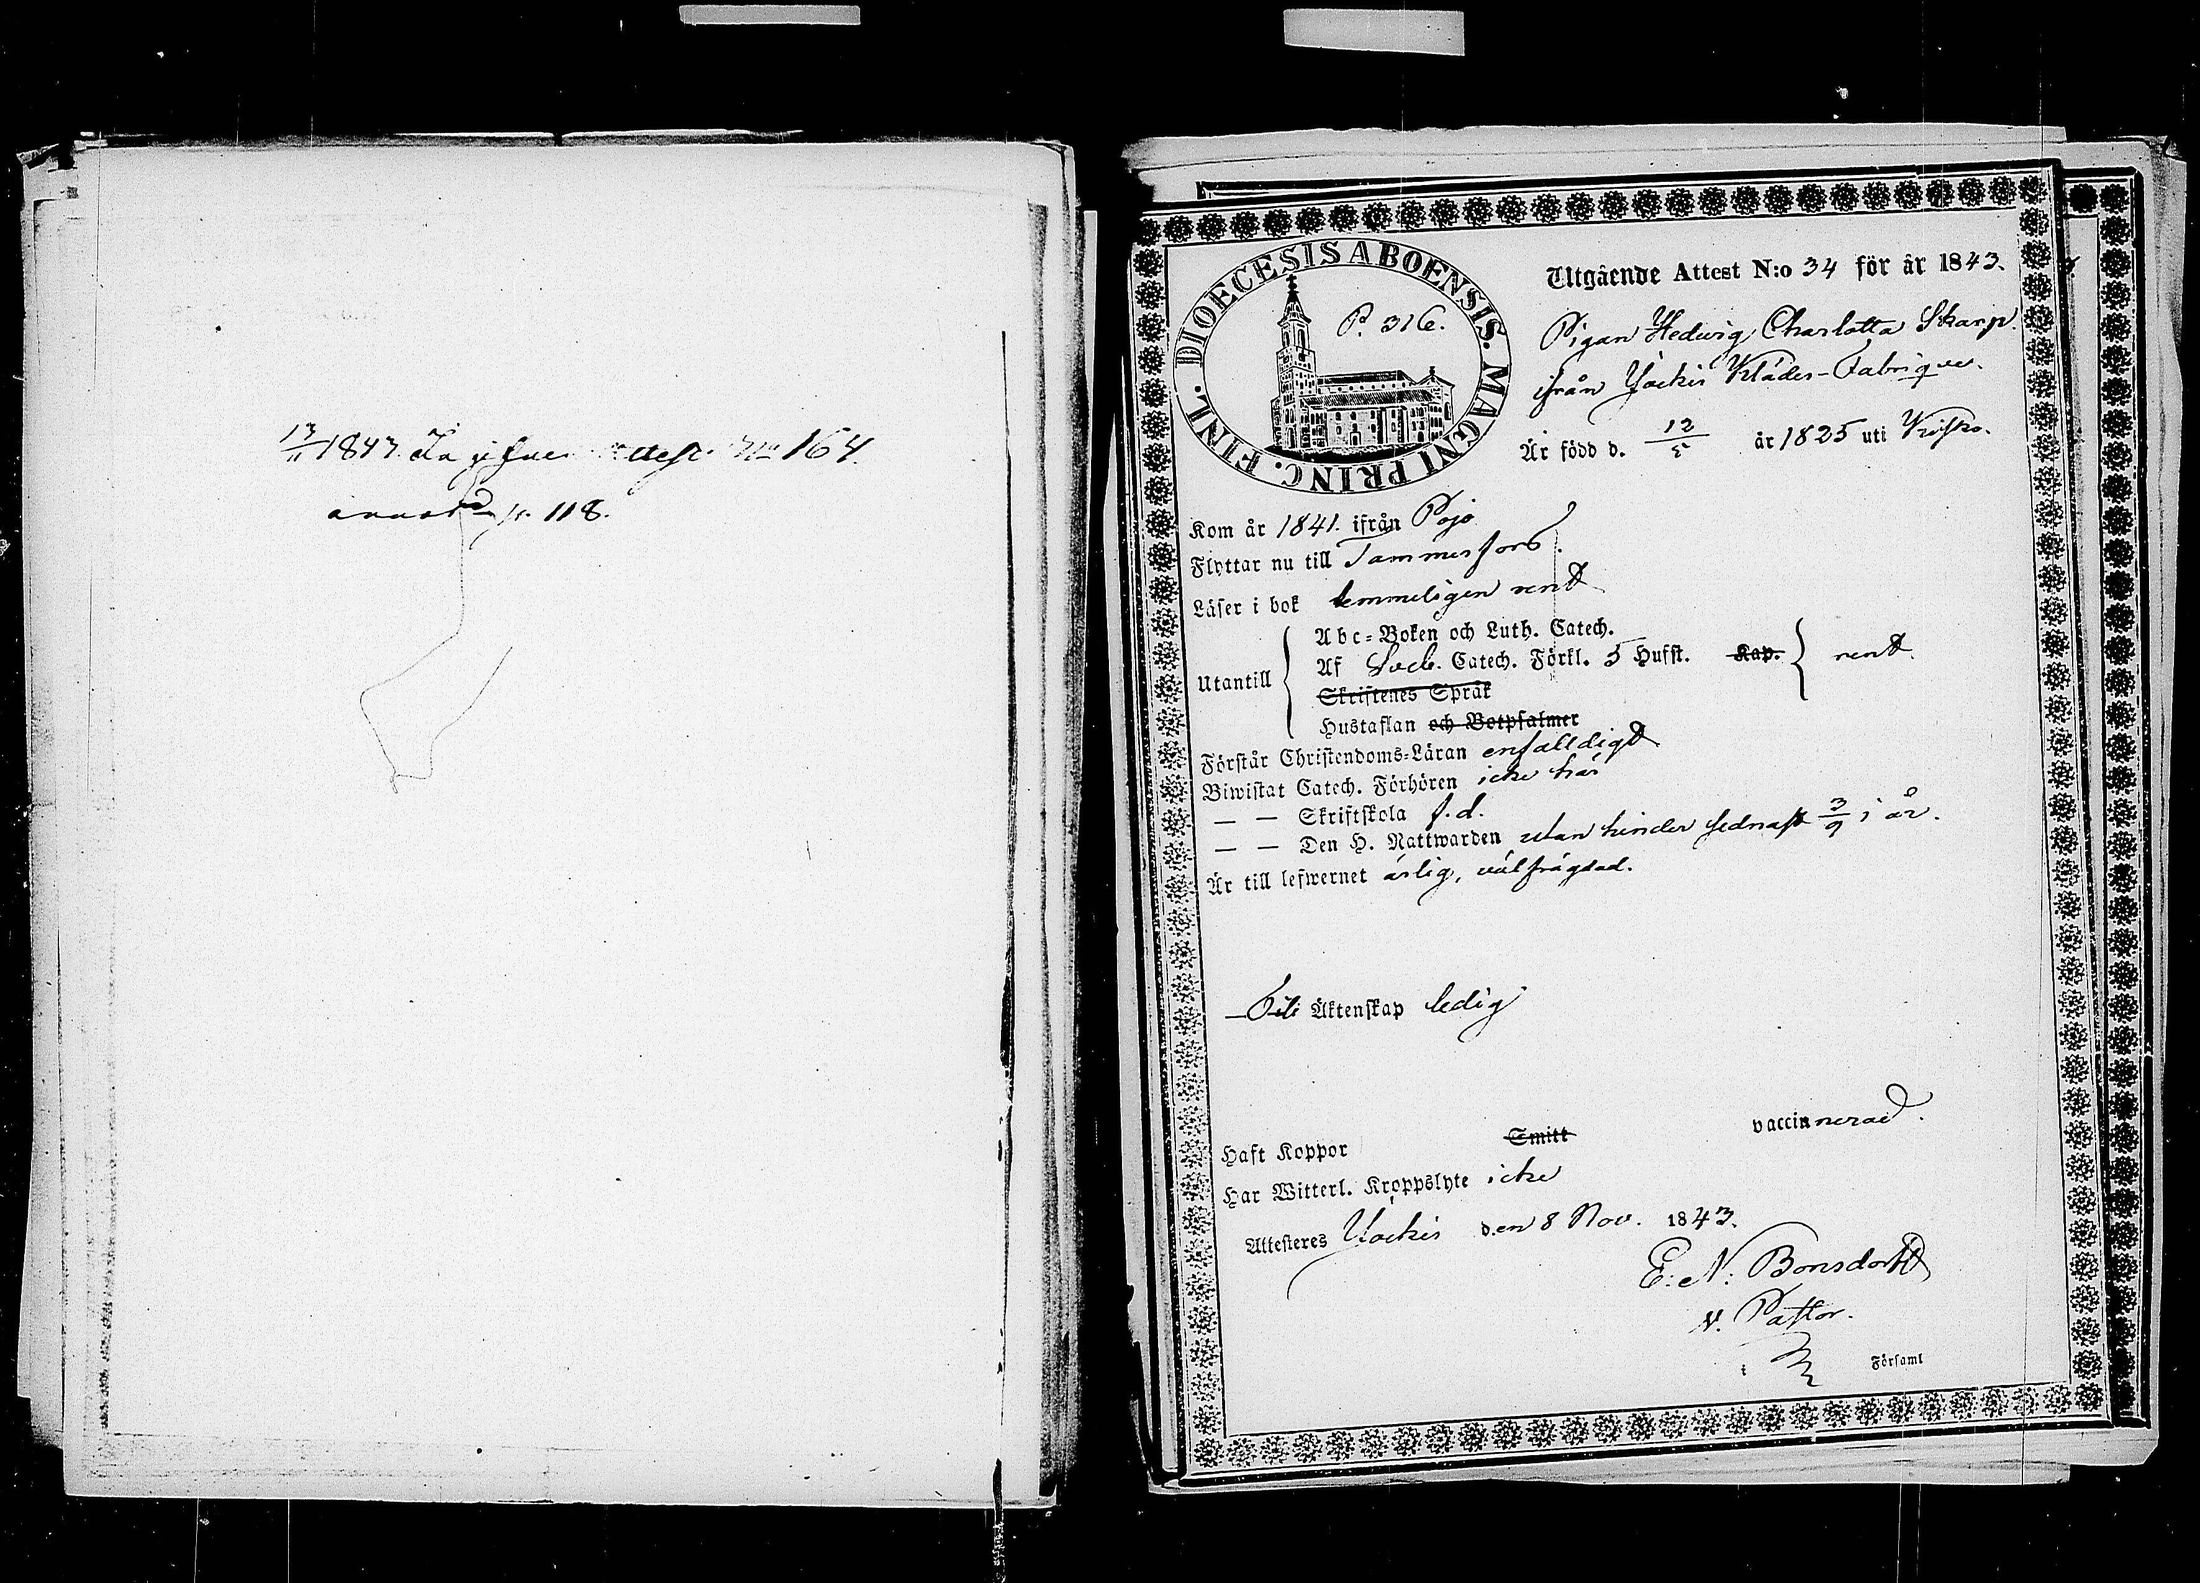 13/11 1843. Attest No 164.
p. 118.
DIOECESIS ABOENSIS. MAGNI PRINC. FINL.
P. 316.
Utgående Attest N:o 34 för år 1843.
Pigan Hedwig Charlotta Skarp
ifrån Jockis Klädes-Fabrique.
Är född d. 12/5 år 1825 uti Kisko.
Kom år 1841. ifrån Pojo
Flyttar nu till Tammerfors.
Läser i bok temmeligen rent
Utantill
Abc-Boken och Luth. Catech.
Af Sveb. Catech. Förkl. 5 Hufst. Kap. rent.
Skriftenes Språk
Hustaflan och Botpsalmer
Förstår Christendoms-Läran enfalldigt
Biwistat Catech. Förhören icke här
— — Skriftskola f.d.
— — Den H. Nattwarden utan hinder sednast 3/9 i år.
Är till lefwernet ärlig, välfrägdad.
Till Äktenskap ledig
Haft Koppor Smitt vaccinnerad.
Har Witterl. Kroppslyte icke
Attesteres Jockis den 8 Nov. 1843.
E. N. Bonsdorff
v. Pastor.
i Församl